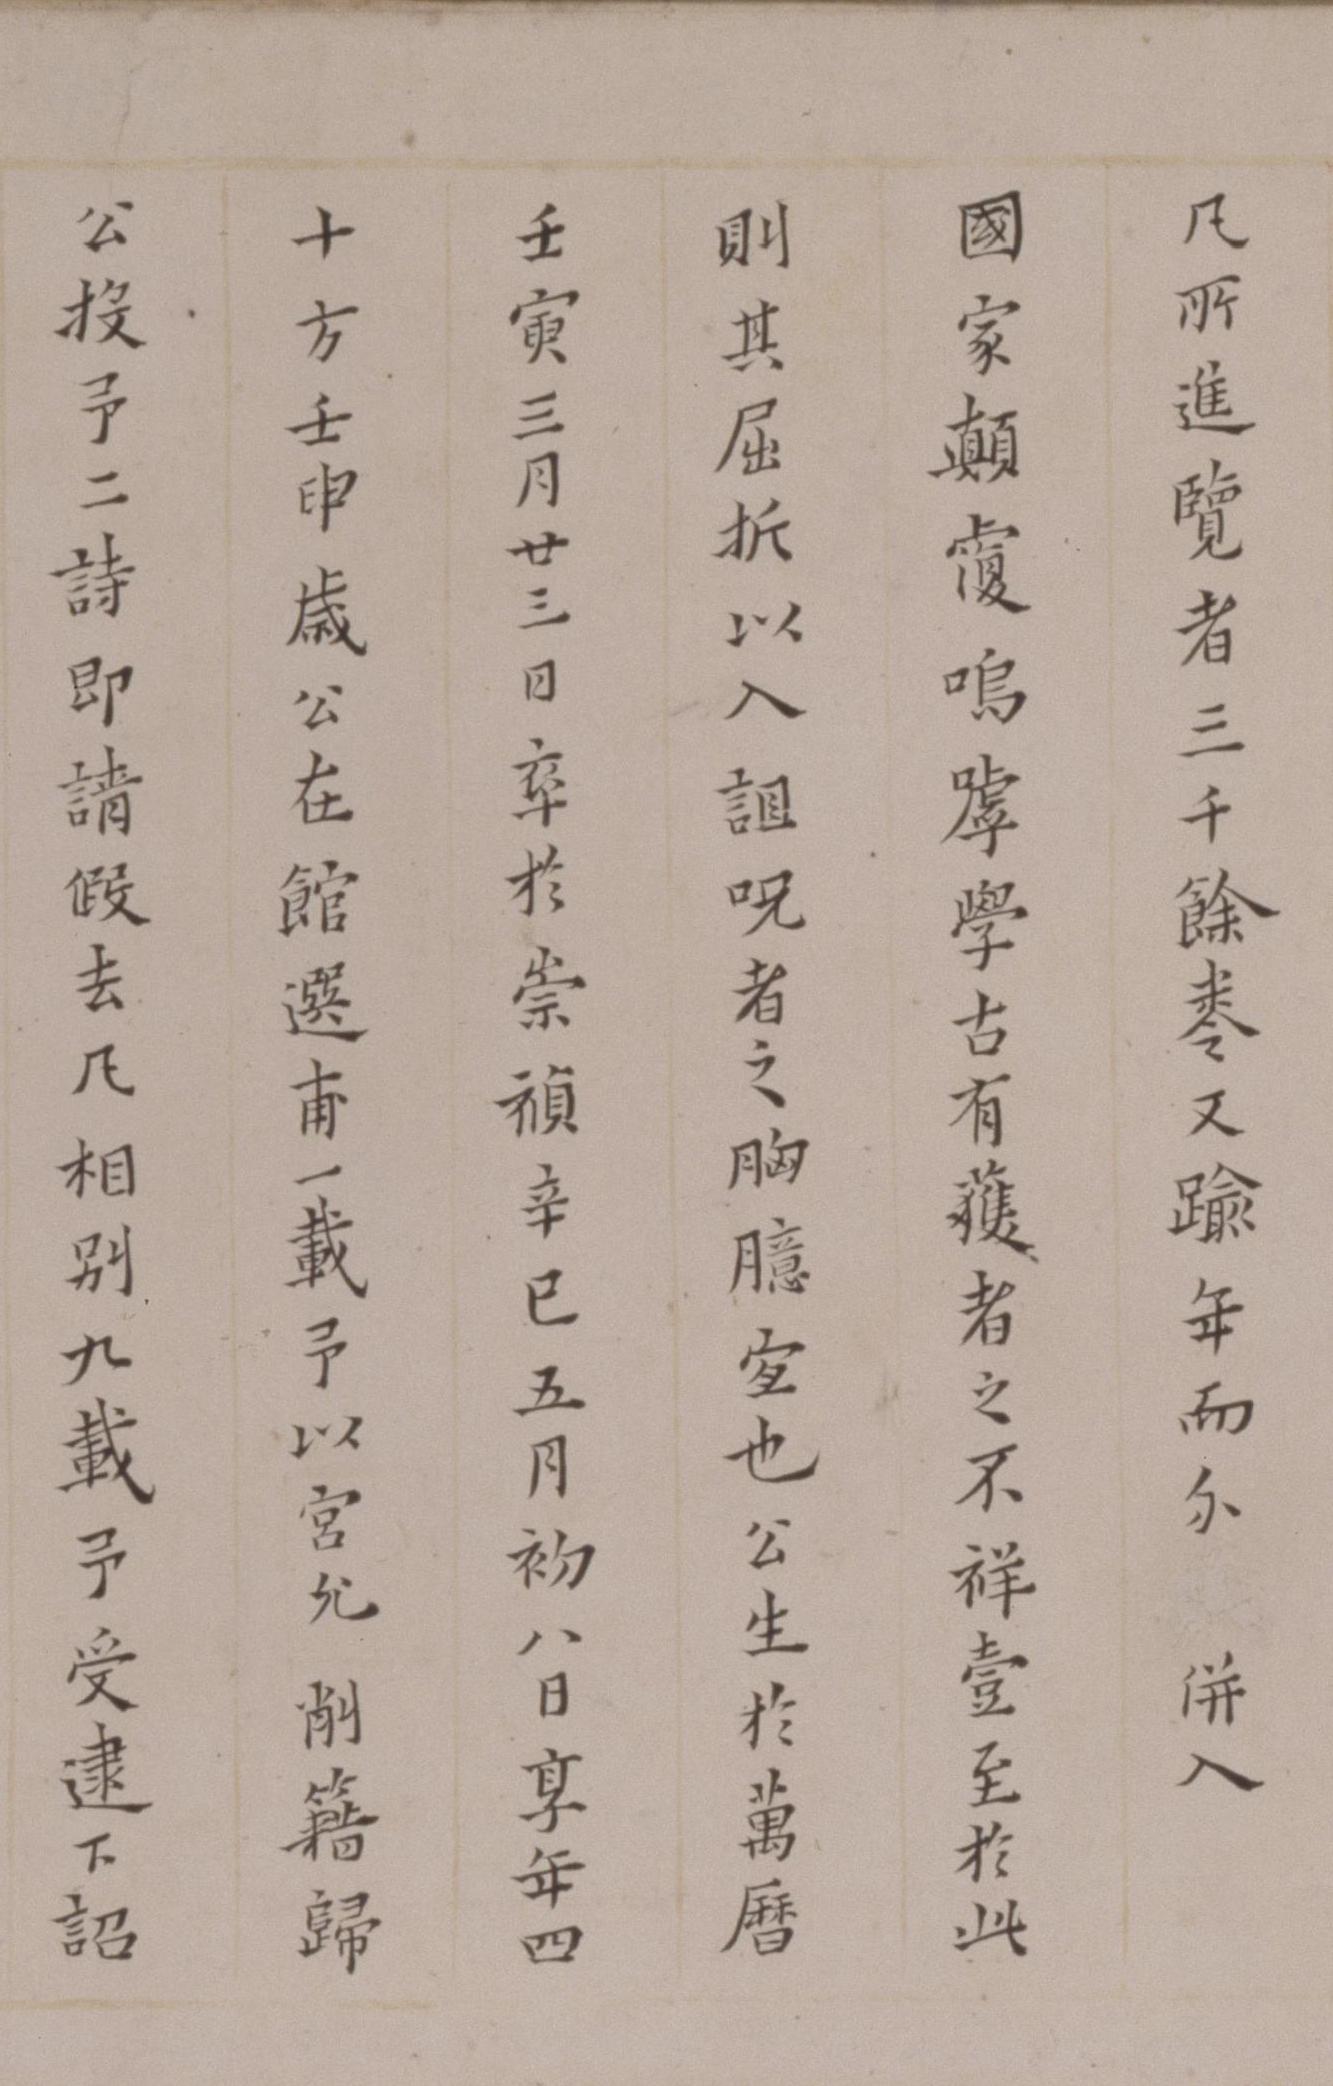 凡所進覽者三千餘卷又踰年而尒 併入
國家顛覆嗚嘑學古有獲者之不祥壹至於此
則其屈折以入詛呪者之胸臆宐也公生於萬曆
壬寅三月廿三日卒於崇禎辛巳五月初八日享年四
十方壬申歲公在館選甫一載予以宮允 削籍歸
公投予二詩即請假去凡相別九載予受逮下詔